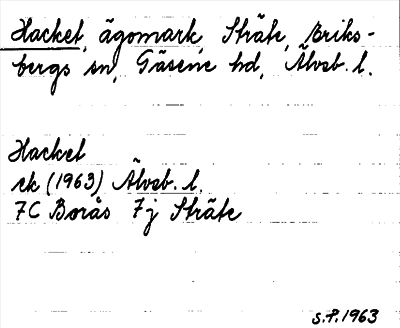 Hacket, ägomark, Sträte, Eriks-
bergs sn, Gäsene hd, Älvsb. l.
Hacket
ek (1963) Älvsb. l.
7C Borås 7j Sträte
S.P. 1963